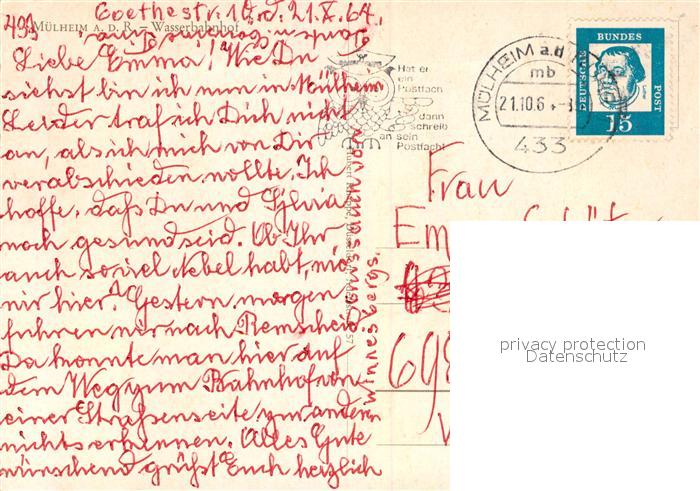 Goethestr. 1 d. 21.X.64.
MÜLHEIM A. D. R. – Wasserbahnhof
Liebe Emma! Wie Du
siehst bin ich nun in Mülheim
Leider traf ich Dich nicht
an, als ich mich von Dir
verabschieden wollte. Ich
hoffe, daß Du und Sylvia
noch gesund seid. Ob Ihr
auch soviel Nebel habt, wie
wir hier? Gestern morgen
fuhren wir nach Remscheid.
Da konnte man hier auf
dem Weg zum Bahnhof von
einer Straßenseite zur anderen
nichts erkennen. Alles Gute
wünschend grüßt Euch herzlich
Hat er
ein
Postfach
dann
schreib
an sein
Postfach!
MÜLHEIM a.d.
mb
21.10.6
433
DEUTSCHE
BUNDES
POST
15
Frau
Em
69
privacy protection
Datenschutz